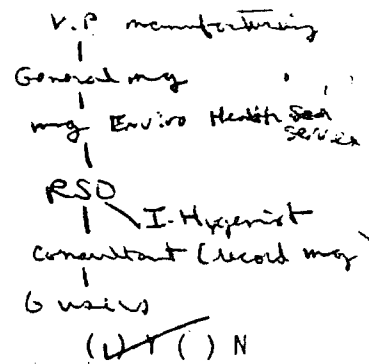 V.P manufacturing
General mg
mg Enviro Health Sad services
RSO
I-Hygenist
Consultant (record mg)
6 users
(✓) Y ( ) N